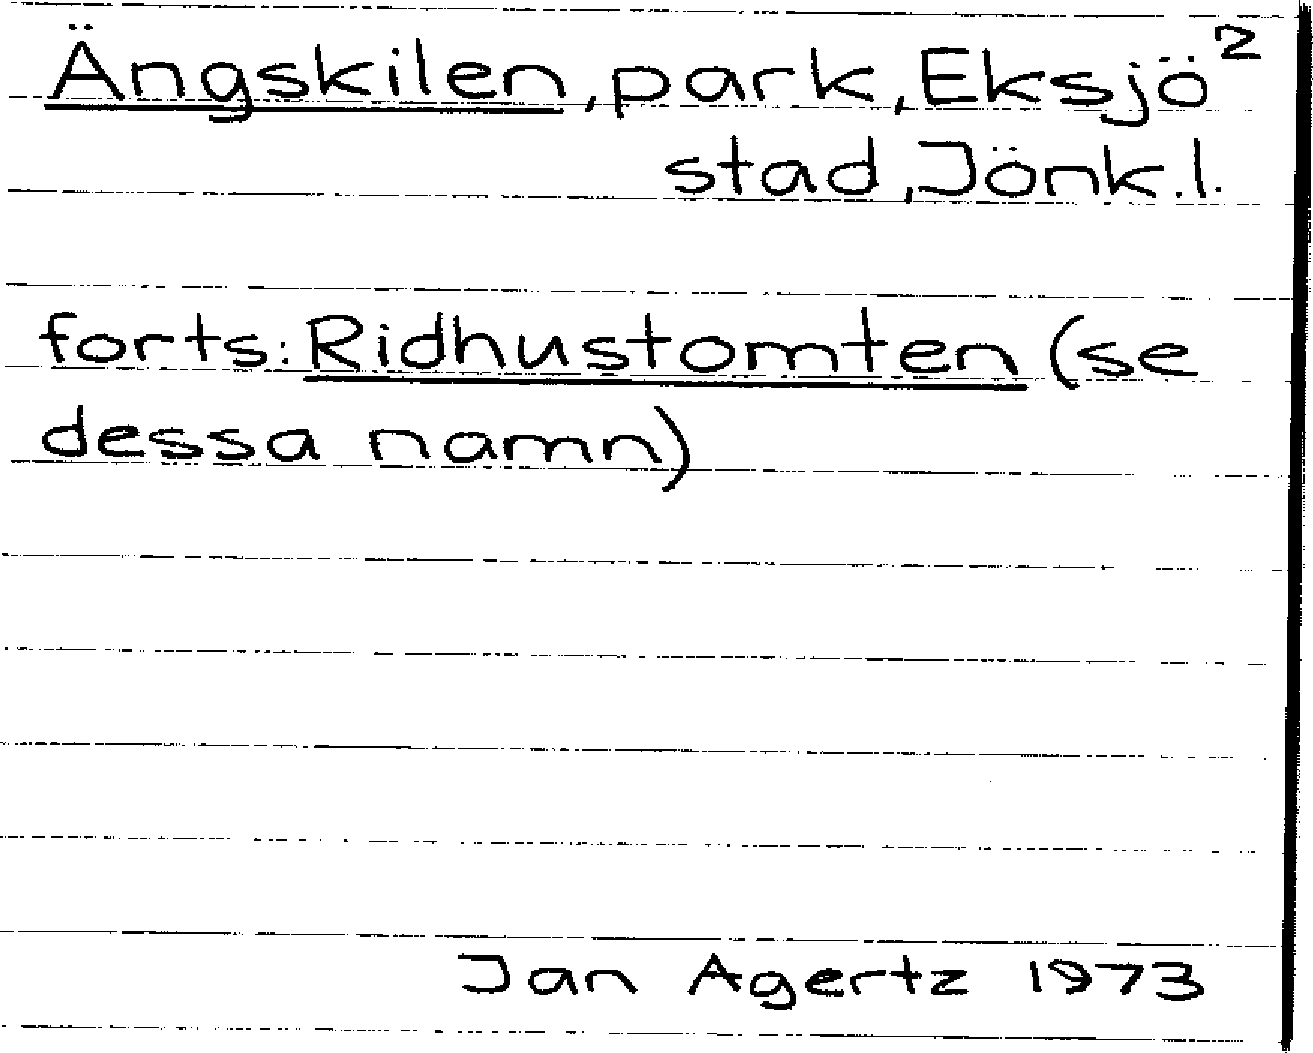 Ängskilen, park, Eksjö 2
stad, Jönk.l.
forts: Ridhustomten (se
dessa namn)
Jan Agertz 1973